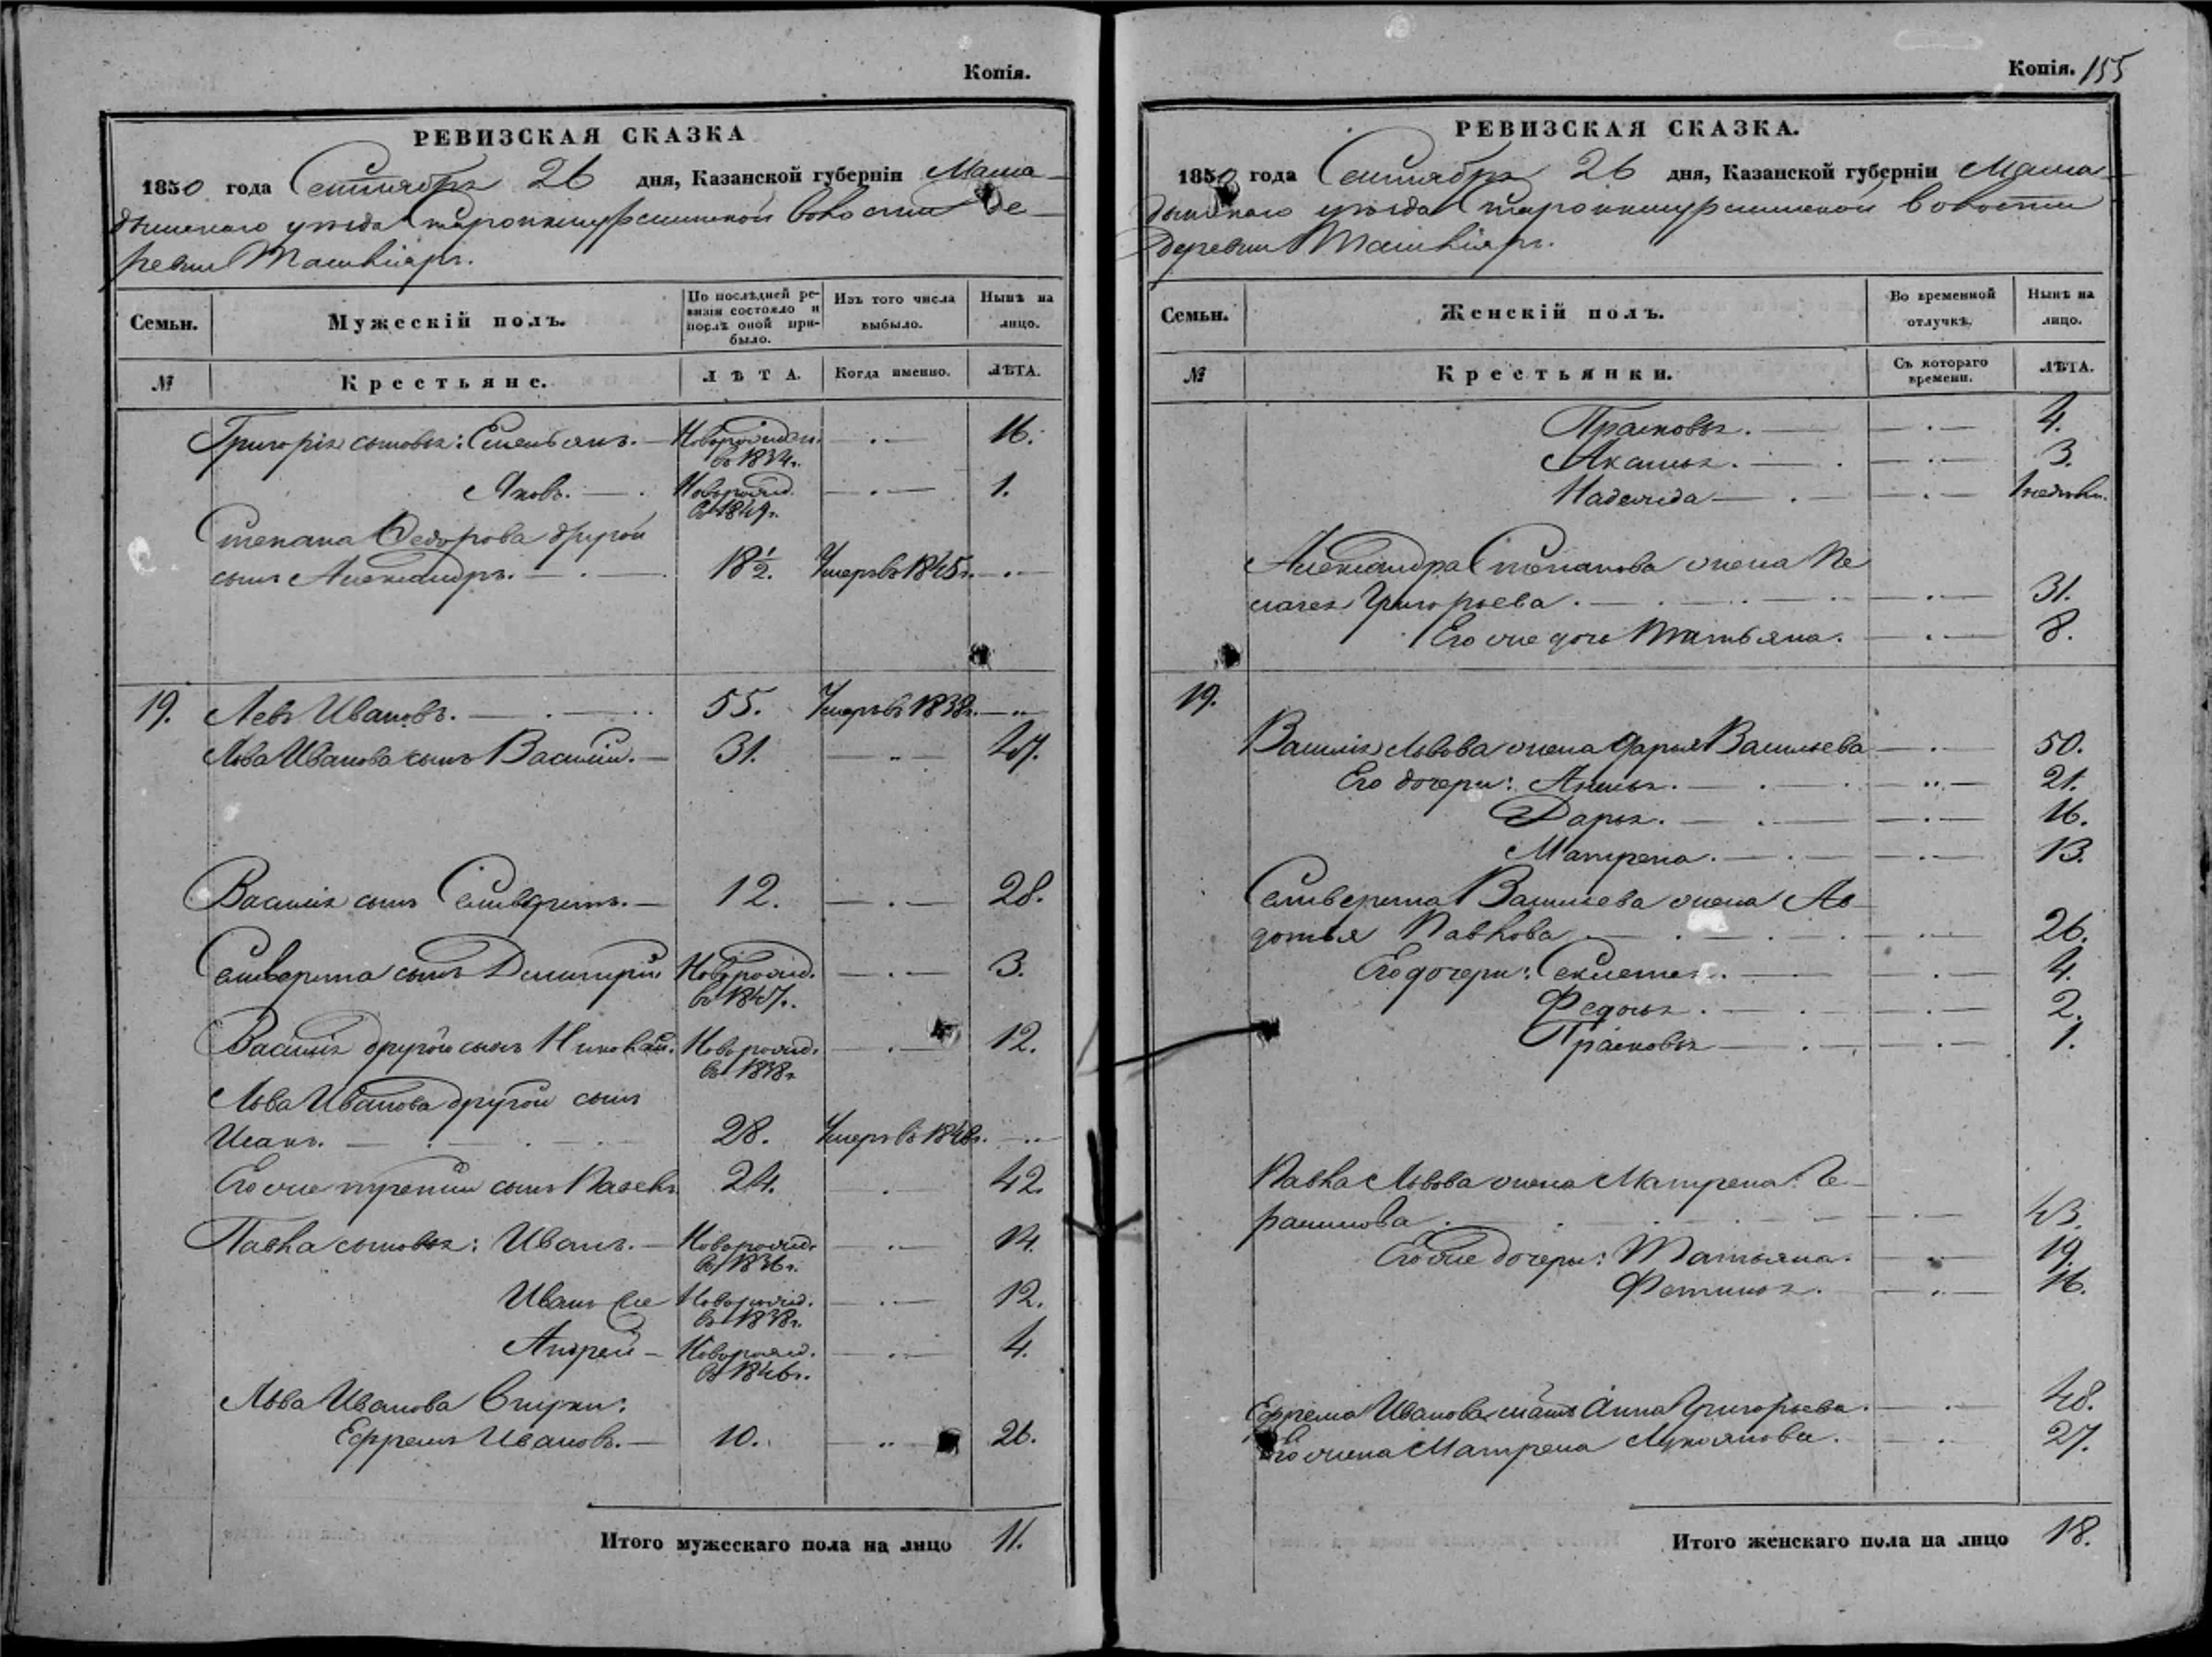 Копія.
РЕВИЗСКАЯ СКАЗКА
1850 года Сентября 26 дня, Казанской губерніи Мама-
дышскаго уѣзда волости де-
ревни Ташкіяръ.
Семьи. Мужескій полъ. По послѣдней ре-визіи состояло и послѣ оной при-было. Изъ того числа выбыло. Нынѣ на лицо.
№ Крестьяне. ЛѢТА. Когда именно. ЛѢТА.
Григорія сыновья: Емельянъ. — Новорожден. — . — 16.
въ 1834г.
Яковъ. — . Новорожд. — . — 1.
въ 1849г.
Степана Федорова другой
сынъ Александръ. — . — 18½. Умеръ въ 1845г. — . —
19. Левъ Ивановъ. — . — 55. Умеръ въ 1838г. — .. —
Льва Иванова сынъ Василій. — 31. — .. — 47.
Василія сынъ Селиверстъ. — 12. — . — 28.
Селиверста сынъ Дмитрій Новорожд. — . — 3.
въ 1847г.
Василія другой сынъ Николай. Новорожд. — . — 12.
въ 1838г.
Льва Иванова другой сынъ
Исакъ. — . — . — 28. Умеръ въ 1848г. — .. —
Его же третій сынъ Павелъ 24. . — 42.
Павла сыновья: Иванъ. — Новорожд. — .. — 14.
въ 1836г.
Иванъ же Новорожд. — .. — 12.
въ 1838г.
Андрей — Новорожд. — .. — 4.
въ 1846г.
Льва Иванова
Ефремъ Ивановъ. — 10. — .. 26.
Итого мужескаго пола на лицо 11.
Копія. 155
РЕВИЗСКАЯ СКАЗКА.
1850 года Сентября 26 дня, Казанской губерніи Мама-
дышскаго уѣзда волости
деревни Ташкіяръ.
Семьи. Женскій полъ. Во временной отлучкѣ. Нынѣ на лицо.
№ Крестьянки. Съ котораго времени. ЛѢТА.
Прасковья. — — . — 4.
Аксинья. — . — . — 3.
Надежда — . — — . — 1 недѣли.
Александра Степанова жена Пе
лагея Григорьева. — . — . — — . — 31.
Его же дочь Татьяна. — . — 8.
19.
Василія Львова жена Дарья Васильева — . — 50.
Его дочери: Анисья. — . — — .. — 21.
Дарья. — . — — . — 16.
Матрена. — . — — . — 13.
Селиверста Васильева жена Ав-
дотья Павлова — . — . — — . — 26.
Его дочери: — — . — 4.
Федосья. — . — — . — 2.
Прасковья — . — — . — 1.
Павла Львова жена Матрена Ге-
расимова. — . — . — — . — 43.
Его же дочери: Татьяна. . — 19.
Фетинья. — .. — 16.
Ефрема Иванова мать Анна Григорьева. — . — 48.
Его жена Матрена Лукоянова. — . — 27.
Итого женскаго пола на лицо 18.